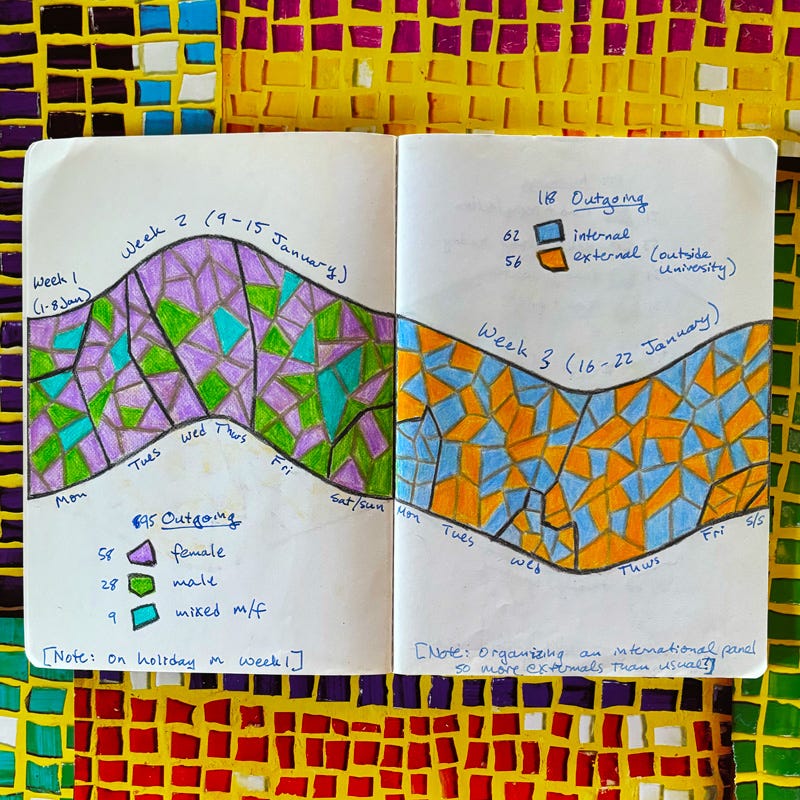 Week 1
(1-8 Jan)
Week 2 (9-15 January)
Mon
Tues
Wed
Thurs
Fri
Sat/Sun
95 Outgoing
58 female
28 male
9 mixed m/f
[Note: on holiday in week 1]
118 Outgoing
62 internal
56 external (outside
University)
Week 3 (16-22 January)
Mon
Tues
Wed
Thurs
Fri
S/S
[Note: Organizing an international panel
so more externals than usual?]